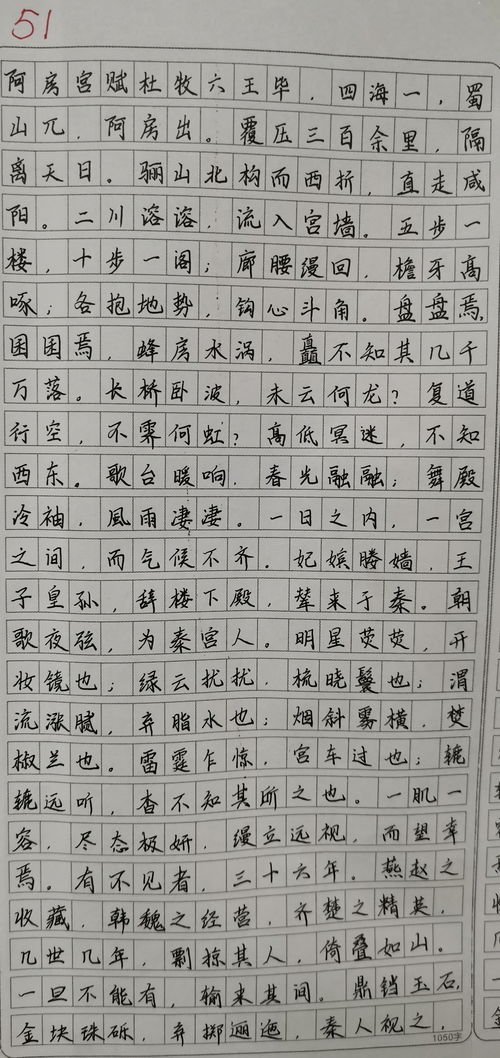 51
阿房宫赋杜牧六王毕，四海一，蜀
山兀，阿房出。覆压三百余里，隔
离天日。骊山北构而西折，直走咸
阳。二川溶溶，流入宫墙。五步一
楼，十步一阁；廊腰缦回，檐牙高
啄；各抱地势，钩心斗角。盘盘焉，
囷囷焉，蜂房水涡，矗不知其几千
万落。长桥卧波，未云何龙？复道
行空，不霁何虹？高低冥迷，不知
西东。歌台暖响，春光融融；舞殿
冷袖，風雨凄凄。一日之内，一宫
之间，而气候不齐。妃嫔媵嫱，王
子皇孙，辞楼下殿，辇来于秦。朝
歌夜弦，为秦宫人。明星荧荧，开
妆镜也；绿云扰扰，梳晓鬟也；渭
流涨腻，弃脂水也；烟斜雾横，焚
椒兰也。雷霆乍惊，宫车过也；辘
辘远听，杳不知其所之也。一肌一
容，尽态极妍，缦立远视，而望幸
焉。有不见者，三十六年。燕赵之
收藏，韩魏之经营，齐楚之精英，
几世几年，剽掠其人，倚叠如山。
一旦不能有，输来其间。鼎铛玉石，
金块珠砾，弃掷逦迤，秦人视之，
1050字